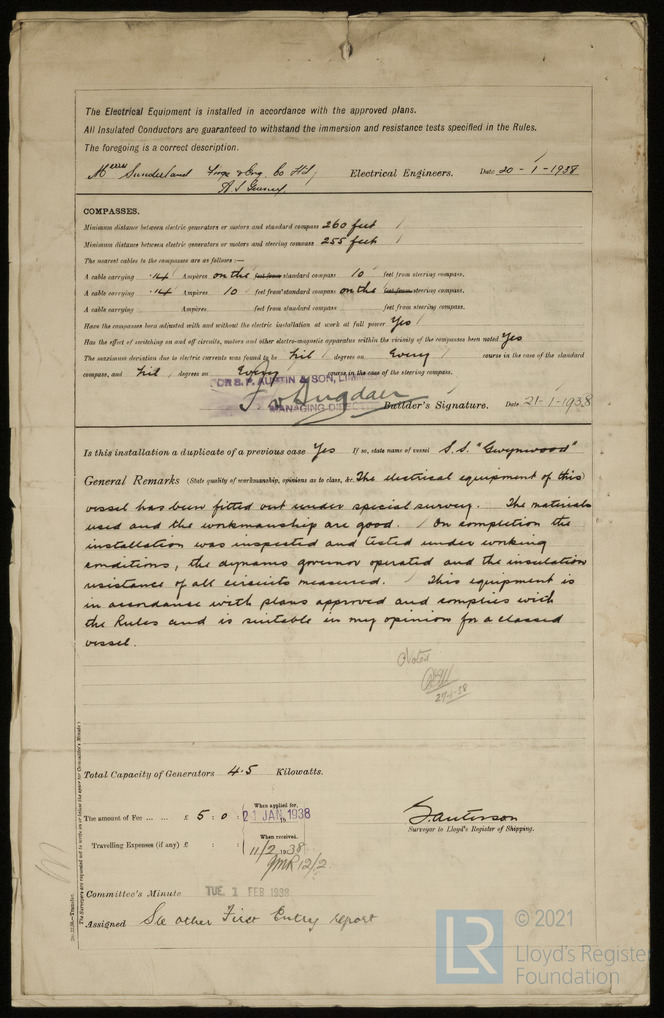 The Electrical Equipment is installed in accordance with the approved plans.
All Insulated Conductors are guaranteed to withstand the immersion and resistance tests specified in the Rules.
The foregoing is a correct description.
Messrs Sunderland Forge & Eng. Co Ltd, Electrical Engineers. Date 20-1-1938
COMPASSES.
Minimum distance between electric generators or motors and standard compass 260 feet
Minimum distance between electric generators or motors and steering compass 255 feet
The nearest cables to the compasses are as follows:—
A cable carrying .14 Ampères on the feet from standard compass 10 feet from steering compass.
A cable carrying .14 Ampères 10 feet from standard compass on the feet from steering compass.
A cable carrying Ampères feet from standard compass feet from steering compass.
Have the compasses been adjusted with and without the electric installation at work at full power Yes
Has the effect of switching on and off circuits, motors and other electro-magnetic apparatus within the vicinity of the compasses been noted Yes
The maximum deviation due to electric currents was found to be Nil degrees on Every course in the case of the standard
compass, and Nil degrees on Every course in the case of the steering compass.
FOR S. P. AUSTIN & SON, LIMITED
MANAGING DIRECTOR Builder's Signature. Date 21-1-1938
Is this installation a duplicate of a previous case Yes If so, state name of vessel S.S. "Gwynwood"
General Remarks (State quality of workmanship, opinions as to class, &c. The electrical equipment of this
vessel has been fitted out under special survey. The materials
used and the workmanship are good. On completion the
installation was inspected and tested under working
conditions, the dynamo governor operated and the insulation
resistance of all circuits measured. This equipment is
in accordance with plans approved and complies with
the Rules and is suitable in my opinion for a classed
vessel.
Noted
27-1-38
Total Capacity of Generators 4.5 Kilowatts.
The amount of Fee ... ... £ 5 : 0 : When applied for, 21 JAN 1938
Surveyor to Lloyd's Register of Shipping.
Travelling Expenses (if any) £ : : When received, 11/2 1938
12/2
Committee's Minute TUE. 1 FEB 1938
Assigned See other First Entry report
The Surveyors are requested not to write on or below the space for Committee's Minute.
Transfer.
LR © 2021
Lloyd's Register
Foundation